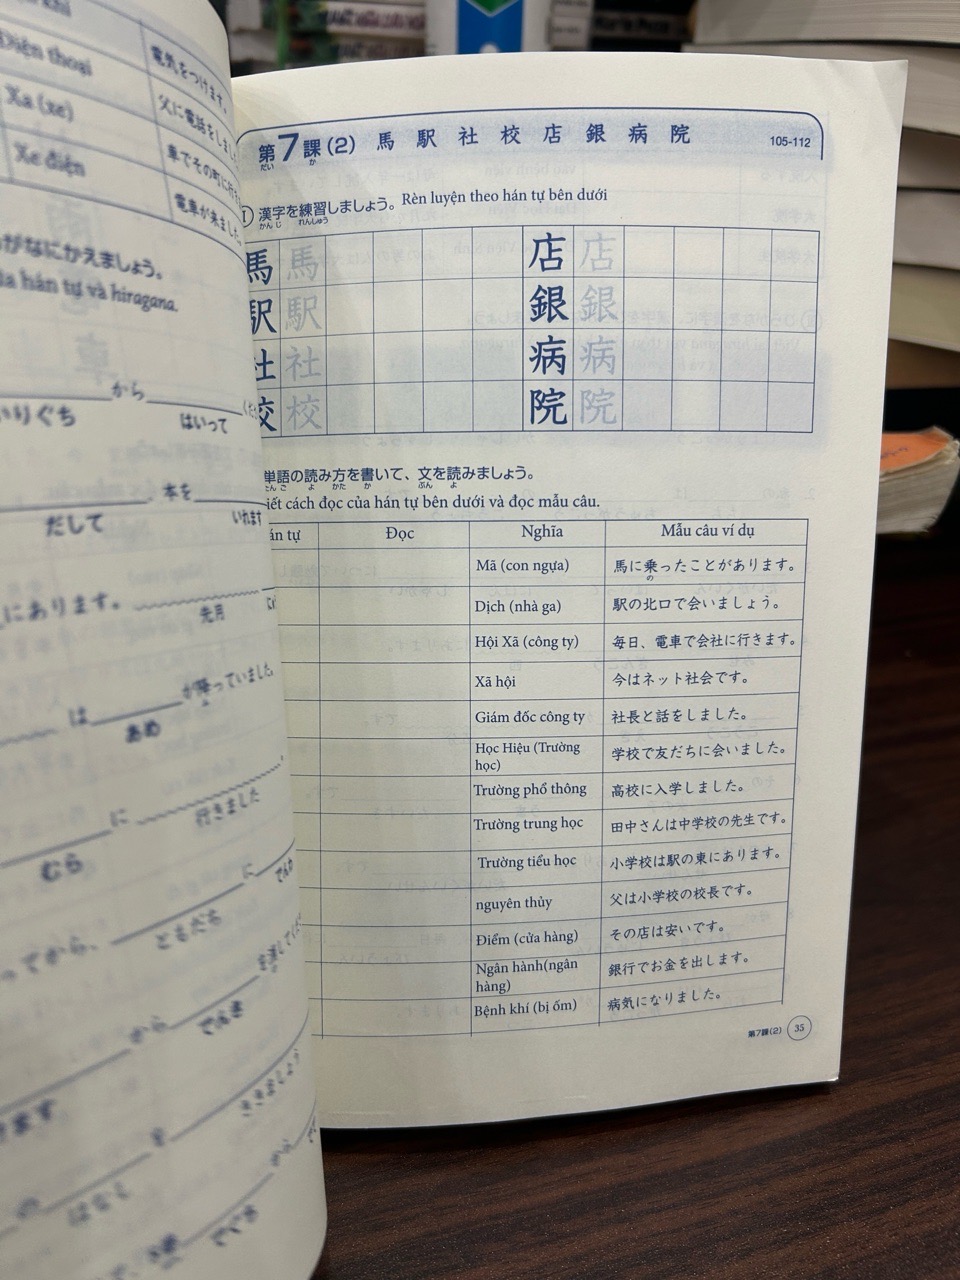 khí
Điện thoại
電気をつけます。
Xa (xe)
父に電話をしました
Xe điện
車でその町に行き
電車が来ました。
がなにかえましょう。
hán tự và hiragana.
から
いりぐち
はいって
本を
だして
いれます
にあります。
先月
は
が降っていました
あめ
に
むら
行きました
に
でんわ
ってから、
ともだち
から
でんき
きます
を
ききましょう
の
はなし
第7課(2) 馬 駅 社 校 店 銀 病 院
だい か
105-112
I 漢字を練習しましょう。 Rèn luyện theo hán tự bên dưới
かんじ れんしゅう
馬 馬 店 店
駅 駅 銀 銀
社 社 病 病
校 校 院 院
単語の読み方を書いて、文を読みましょう。
たんご よ かた か ぶん よ
iết cách đọc của hán tự bên dưới và đọc mẫu câu.
án tự Đọc Nghĩa Mẫu câu ví dụ
Mã (con ngựa) 馬に乗ったことがあります。
の
Dịch (nhà ga) 駅の北口で会いましょう。
Hội Xã (công ty) 毎日、電車で会社に行きます。
Xã hội 今はネット社会です。
Giám đốc công ty 社長と話をしました。
Học Hiệu (Trường học) 学校で友だちに会いました。
Trường phổ thông 高校に入学しました。
Trường trung học 田中さんは中学校の先生です。
Trường tiểu học 小学校は駅の東にあります。
nguyên thủy 父は小学校の校長です。
Điểm (cửa hàng) その店は安いです。
Ngân hành(ngân hàng) 銀行でお金を出します。
Bệnh khí (bị ốm) 病気になりました。
第7課(2) 35